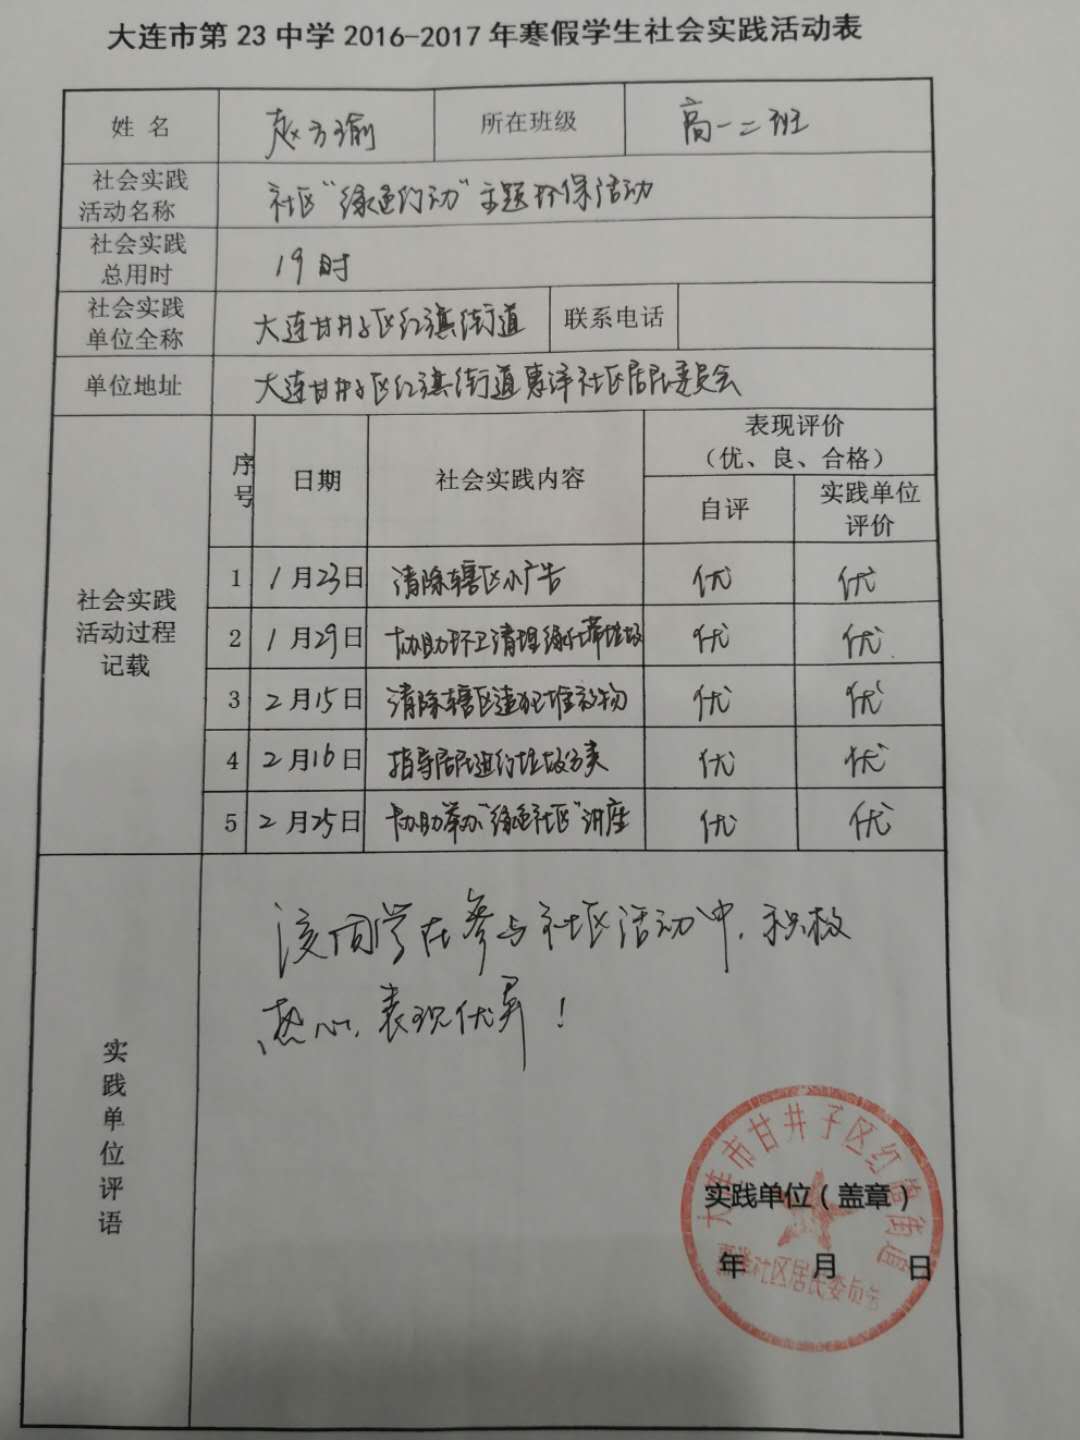 大连市第23中学2016-2017年寒假学生社会实践活动表
姓 名 赵方瑜 所在班级 高一二班
社会实践
活动名称
社区“绿色行动”主题环保活动
社会实践
总用时
19时
社会实践
单位全称
大连甘井子区红旗街道 联系电话
单位地址 大连甘井子区红旗街道惠泽社区居民委员会
社会实践
活动过程
记载
序
号
日期 社会实践内容
表现评价
（优、良、合格）
自评
实践单位
评价
1 1月23日 清除辖区小广告 优 优
2 1月29日 协助环卫清理绿化带垃圾 优 优
3 2月15日 清除辖区违规堆放物 优 优
4 2月16日 指导居民进行垃圾分类 优 优
5 2月25日 协助举办“绿色社区”讲座 优 优
实
践
单
位
评
语
该同学在参与社区活动中，积极
热心，表现优异！
大连市甘井子区红旗街道
实践单位（盖章）
年 月 日
惠泽社区居民委员会